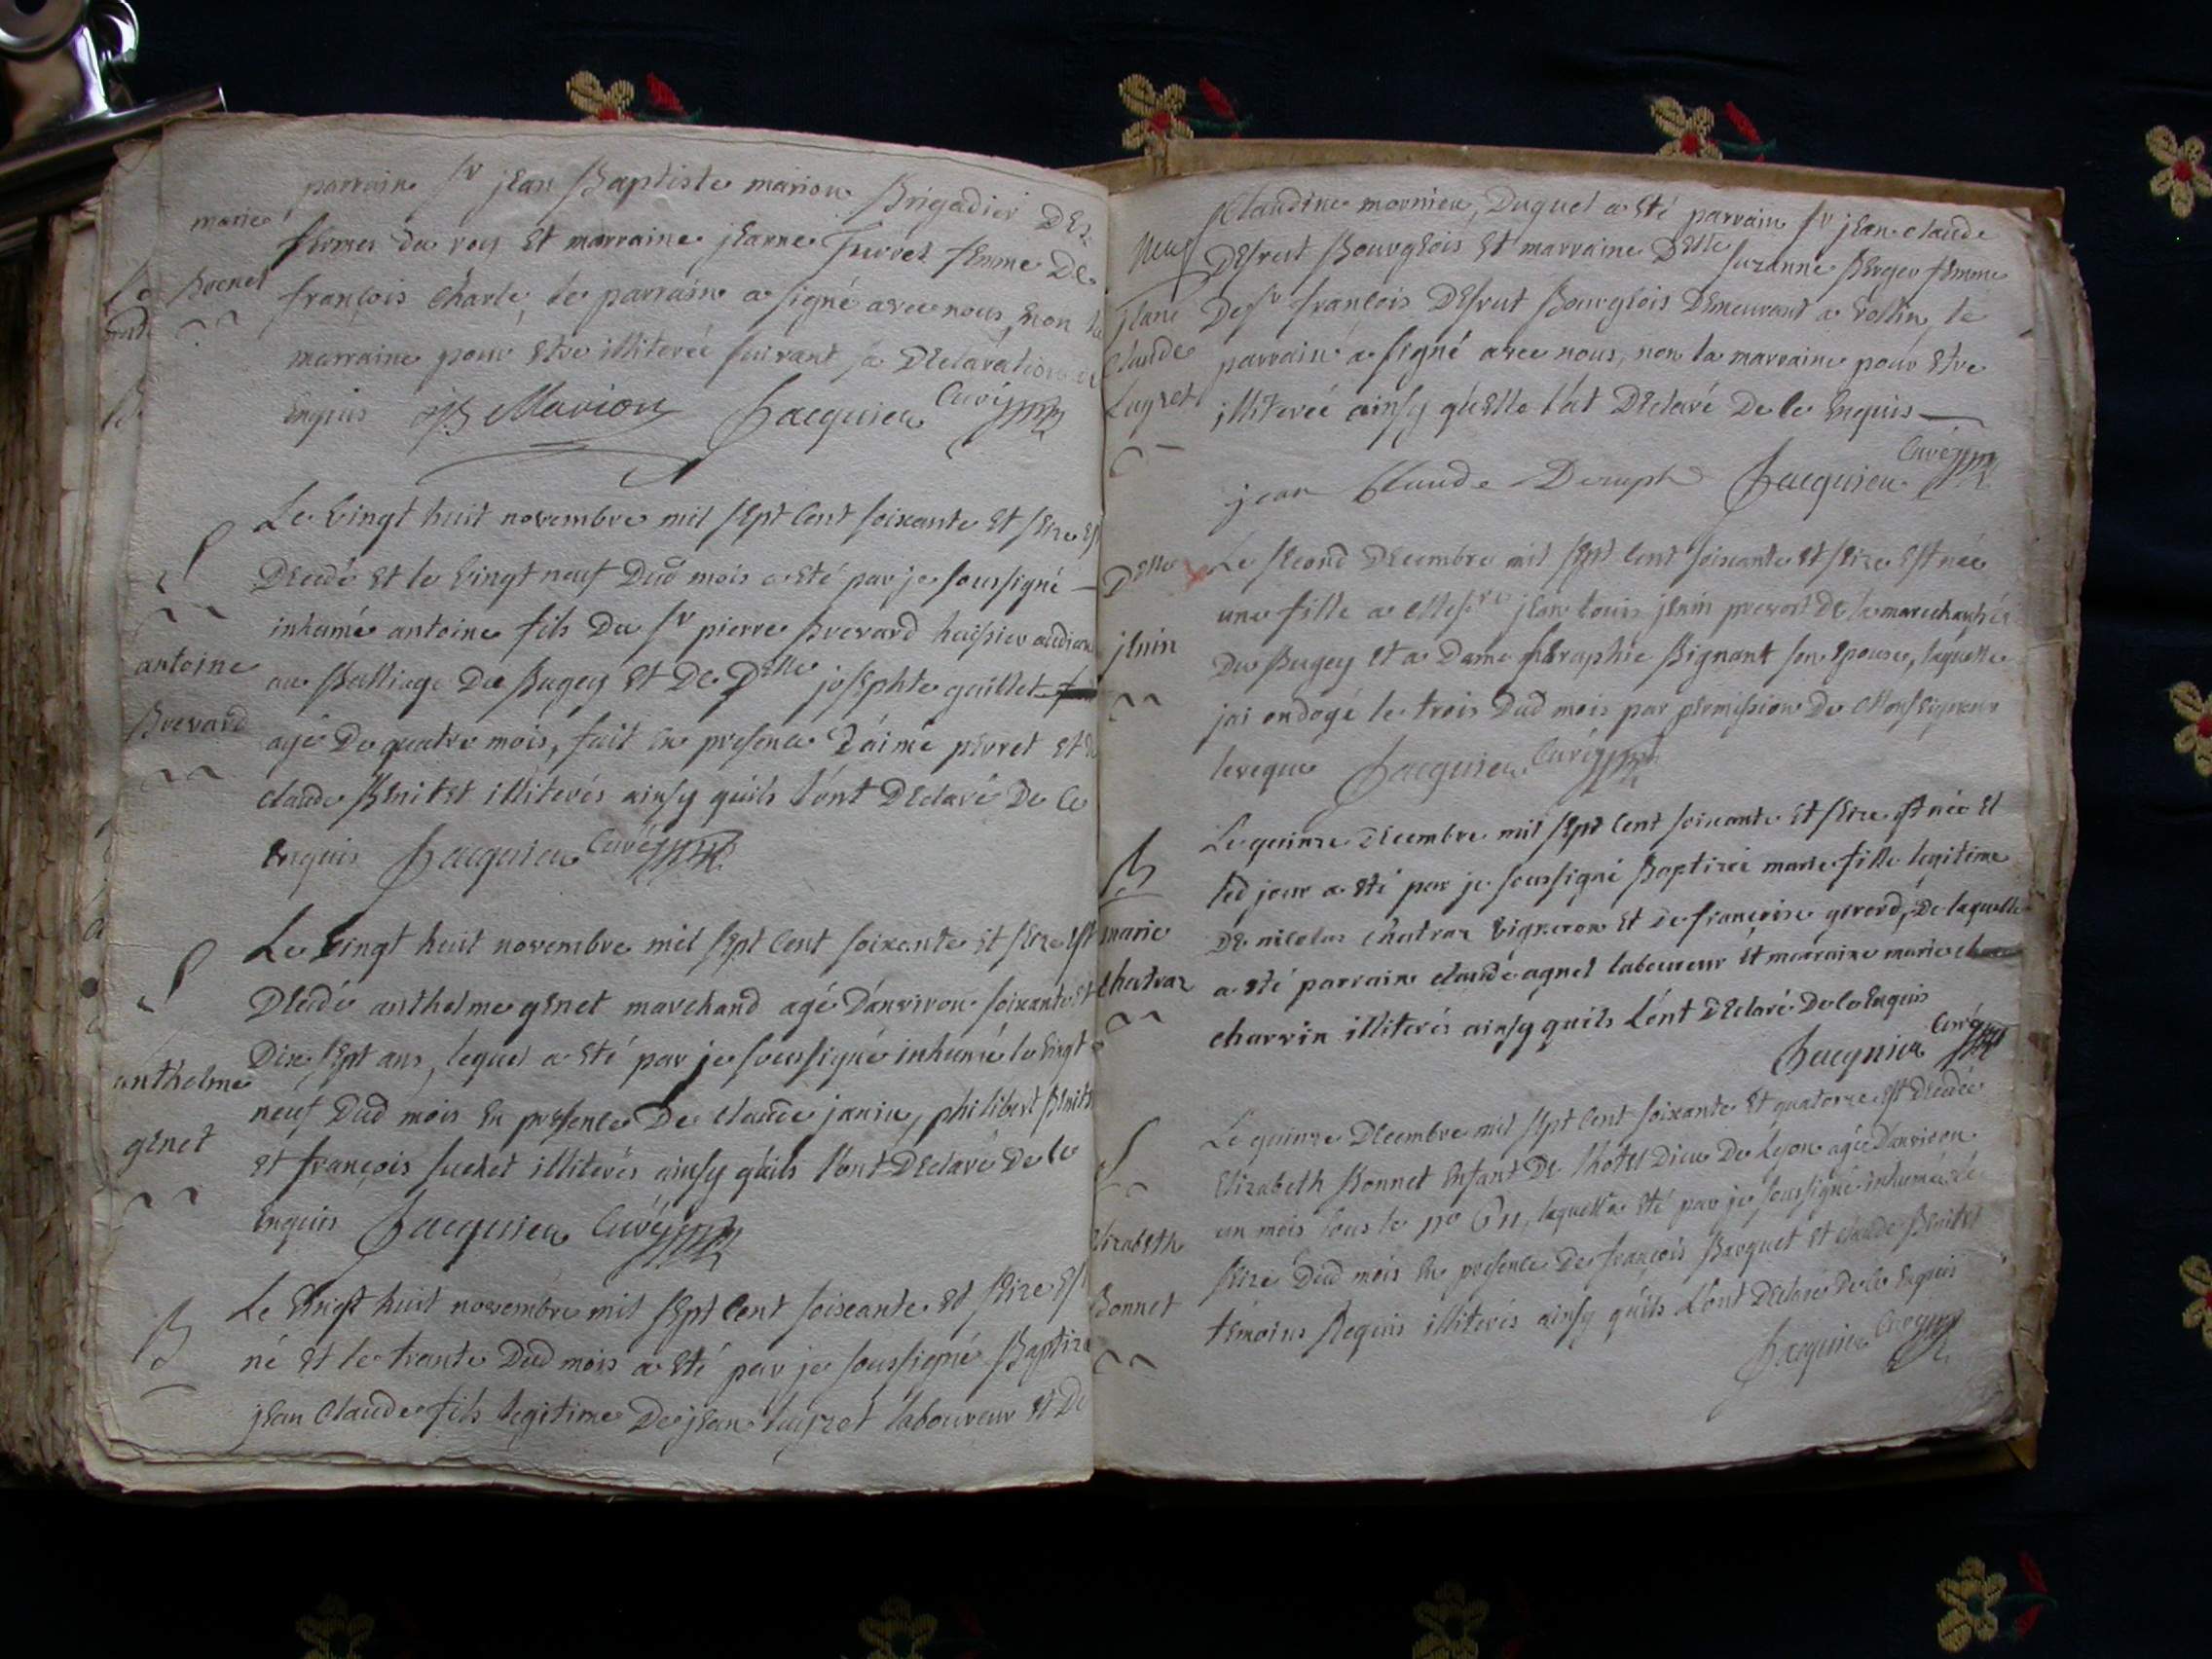 parrain Sr jean Baptiste marion Brigadier Des
marie
fermes du roy Et marraine jeanne perret femme De
Brenet
françois Charle, le parrain a signé avec nous, non la
marraine pour Etre illiterée suivant sa Declaration
Enquis JB Marion Jacquieu Curé
Le vingt huit novembre mil sept Cent soixante Et seize Est
Decedé Et le vingt neuf Dud mois a Eté par je soussigné
S
inhumé antoine fils Du Sr pierre Brevard huissier audien
antoine
au Balliage Du Bugey Et De Delle josephte guillet
Brevard
agé De quatre mois, fait En presence D'aimé perret Et De
claude Benitet illiterés ainsy qu'ils L'ont Declaré De Ce
Enquis Jacquieu Curé
Le vingt huit novembre mil sept Cent soixante Et seize Est
S
Decedé anthelme genet marchand agé D'anviron soixante Et
Dix sept ans, lequel a Eté par je soussigné inhumé le vingt
anthelme
neuf Dud mois En presence De claude janin, philibert Benitet
genet
Et françois suchet illiterés ainsy qu'ils l'ont Declaré De Ce
Enquis Jacquieu Curé
Le vingt huit novembre mil sept Cent soixante Et seize Est
B
né Et le trante Dud mois a Eté par je soussigné Baptizé
jean Claude fils legitime De jean luyzet laboureur Et De
Claudine mornieu, Duquel a Eté parrain Sr jean claude
Desrut Bourgeois Et marraine Delle Suzanne Berger femme
jean
De Sr françois Desrut Bourgeois Demeurant a vollin, le
claude
parrain a signé avec nous, non la marraine pour Etre
Luyzet
illiterée ainsy qu'elle l'at Declaré De Ce Enquis
jean Claude Deruph Jacquieu Curé
Delle
Le second Decembre mil sept Cent soixante Et seize Est née
une fille a Messre jean Louis jenin prevost De la marechaussée
jenin
Du Bugey Et a Dame seraphie Bignant son Epouse, laquelle
jai ondoyé le trois Dud mois par permission De Monseigneur
leveque Jacquieu Curé
Le quinze Decembre mil sept Cent soixante Et seize Est née Et
B
led jour a Eté par je soussigné Baptizée marie fille legitime
marie
De nicolas chatraz vigneron Et De françoise gerord, De laquelle
chatraz
a Eté parrain claude agnel laboureur Et marraine marie
charvin illiterés ainsy quils L'ont Declaré De Ce Enquis
Jacquieu Curé
Le quinze Decembre mil sept Cent soixante Et quatorze Est Decedée
S
Elizabeth Bonnet Enfant De l'hotel Dieu De Lyon agée D'anviron
un mois sous le no, laquelle a Eté par je soussigné inhumée le
Elizabeth
seize Dud mois En presence De françois Barquet Et claude Benitet
Bonnet
témoins Requis illiterés ainsy qu'ils L'ont Declaré De Ce Enquis
Jacquieu Curé